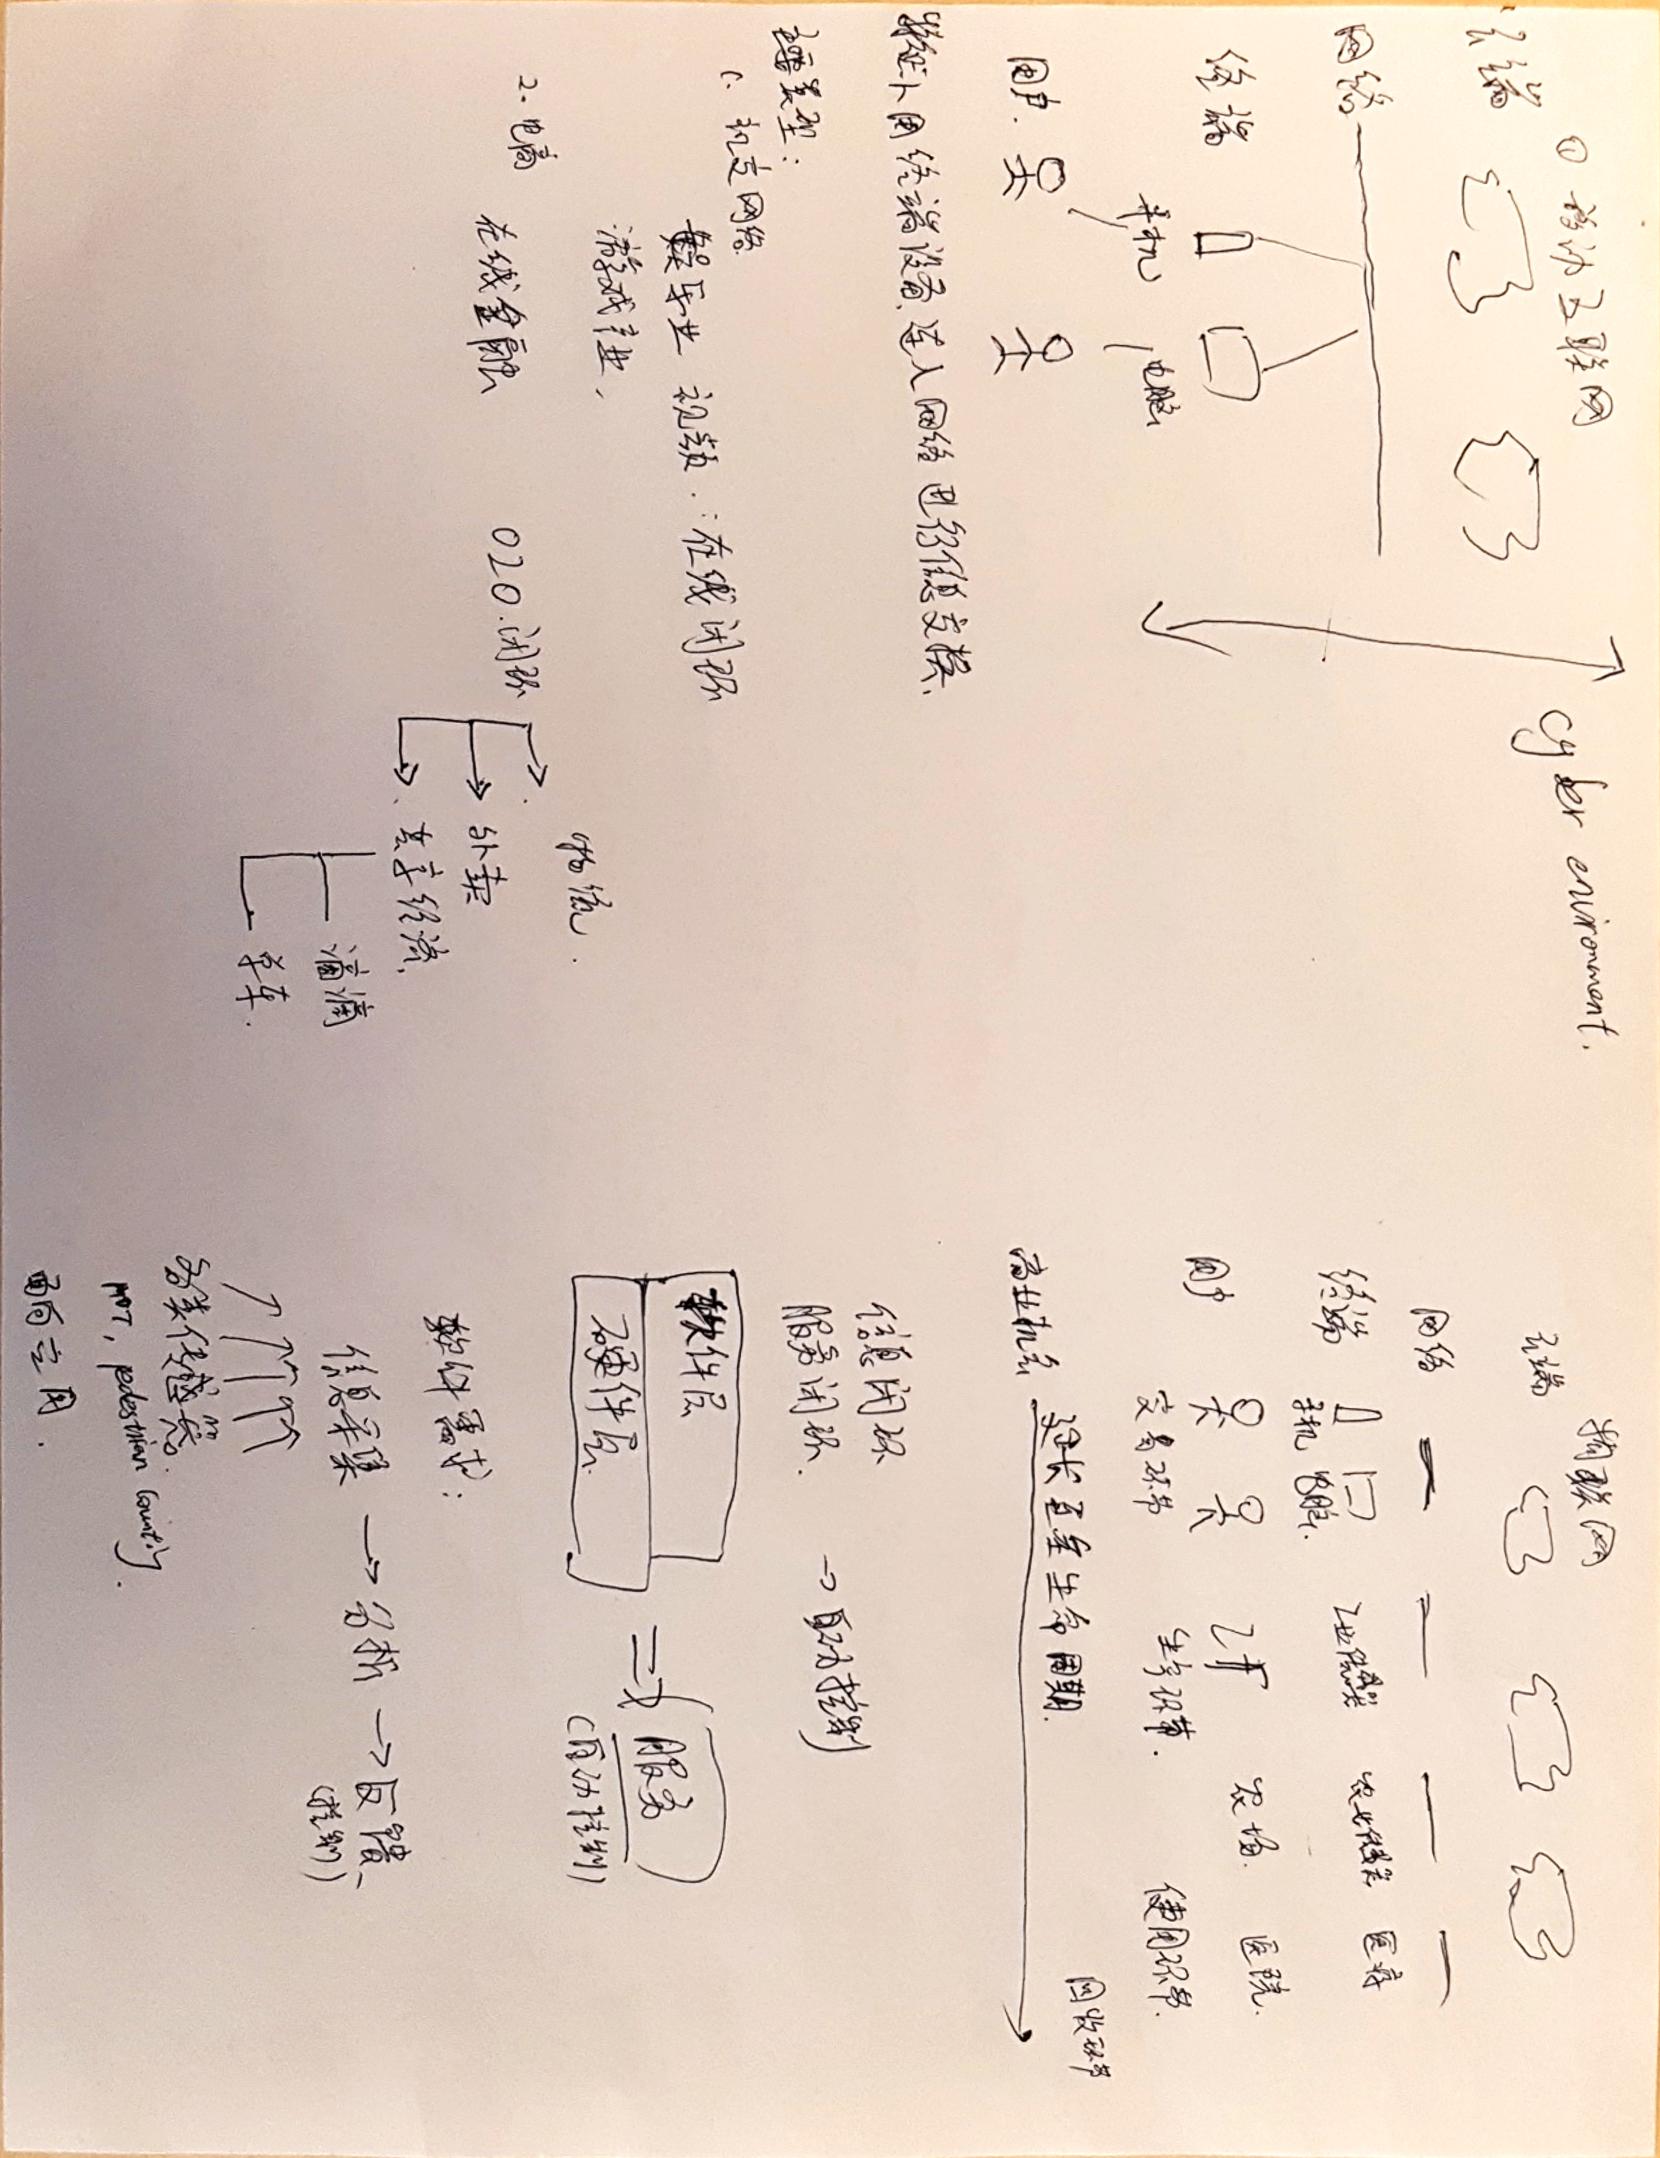 ① 移动互联网
cyber environment.
云端
网络
终端
手机 电脑
用户.
特征:人用终端设备、连入网络进行信息交换、
主要类型:
1. 社交网络
娱乐业 视频.:在线闭环
游戏产业,
2. 电商 在线金融 O2O.闭环
物流.
外卖
共享经济、
滴滴
单车.
物联网
云端
网络
终端 手机 电脑. 工业传感器 农业传感器 医疗
用户 工厂 农场. 医院.
交易环节 生产环节. 使用环节.
回收环节
商业机会 延长至全生命周期.
信息闭环
服务闭环. → 自动控制
软件层
硬件层.
⇒ 服务
(自动控制)
软件需求:
信息采集 → 分析 → 反馈、
(控制)
各类传感器.
MOT, pedestrian counting.
面向应用.